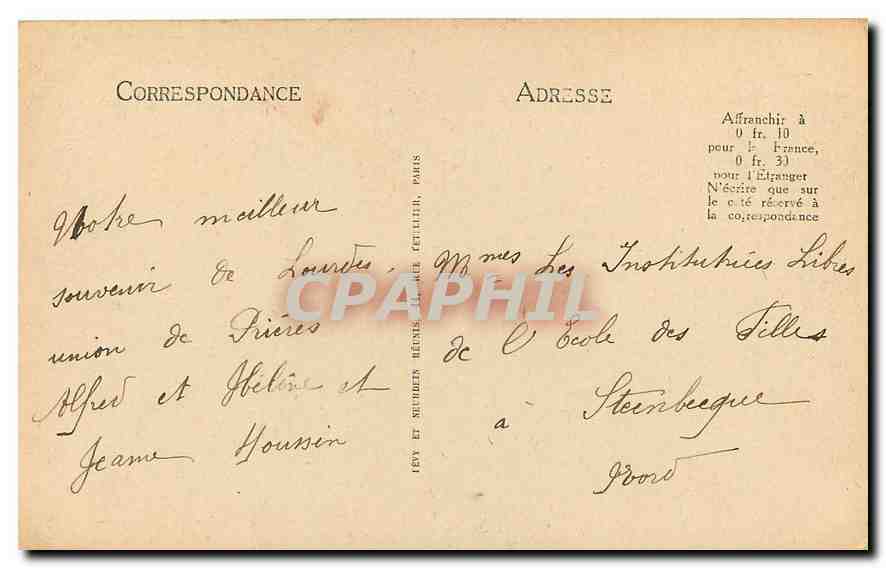 CORRESPONDANCE
Notre meilleur
souvenir de Lourdes,
union de Prières
Alfred et Hélène et
Jeanne Houssin
LÉVY ET NEURDEIN RÉUNIS, 44, RUE LETELLIER, PARIS
ADRESSE
Affranchir à
0 fr. 10
pour la France,
0 fr. 30
pour l'Étranger
N'écrire que sur
le côté réservé à
la correspondance
Mmes Les Institutrices Libres
de l'Ecole des Filles
à Steenbecque
Nord
CPAPHIL